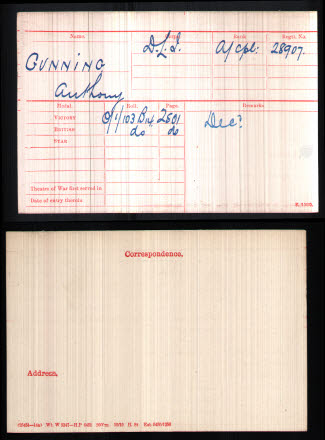 Name. Corps. Rank. Regtl. No.
GUNNING D.L.I. A/Cpl. 28907.
Anthony
Medal. Roll. Page. Remarks.
VICTORY O/1/103B14 2501 Dec?
BRITISH do do
STAR
Theatre of War first served in
Date of entry therein
K.1380.
Correspondence.
Address.